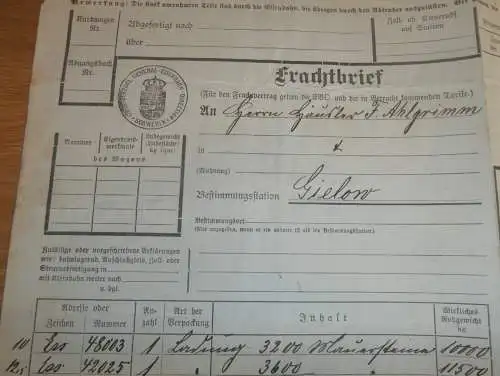 Bemerkung: Die stark umrahmten Teile sind durch die Eisenbahn, die übrigen durch den Absender auszufüllen.
Kurdungen Nr.
Abgefertigt nach
über
Zoll- od.
auf Station
Abgangsbuch Nr.
Frachtbrief
(Für den Frachtvertrag gelten die EVO und die in Betracht kommenden Tarife.)
An Herrn Häusler F. Ahlgrimm
in
(Wohnung)
Nummer
Eigentumsmerkmale
Ladegewicht
(Ladefläche)
kg (qm)
des Wagens
Bestimmungsstation Gielow
Bestimmungsort
(Nur anzugeben, wenn er ein anderer ist als die Bestimmungsstation.)
Zulässige oder vorgeschriebene Erklärungen
wie: bahnlagernd, Anschlußgleis, Zoll- oder
Steuerabfertigung in
mit Kleinbahn weiter nach
u. dgl.
Adresse oder
Zeichen Nummer
Anzahl
Art der Verpackung
Inhalt
Wirkliches Rohgewicht kg
10 48003 1 Ladung 3200 Mauersteine 10000
12,5 42025 1 " 3600 " 11500